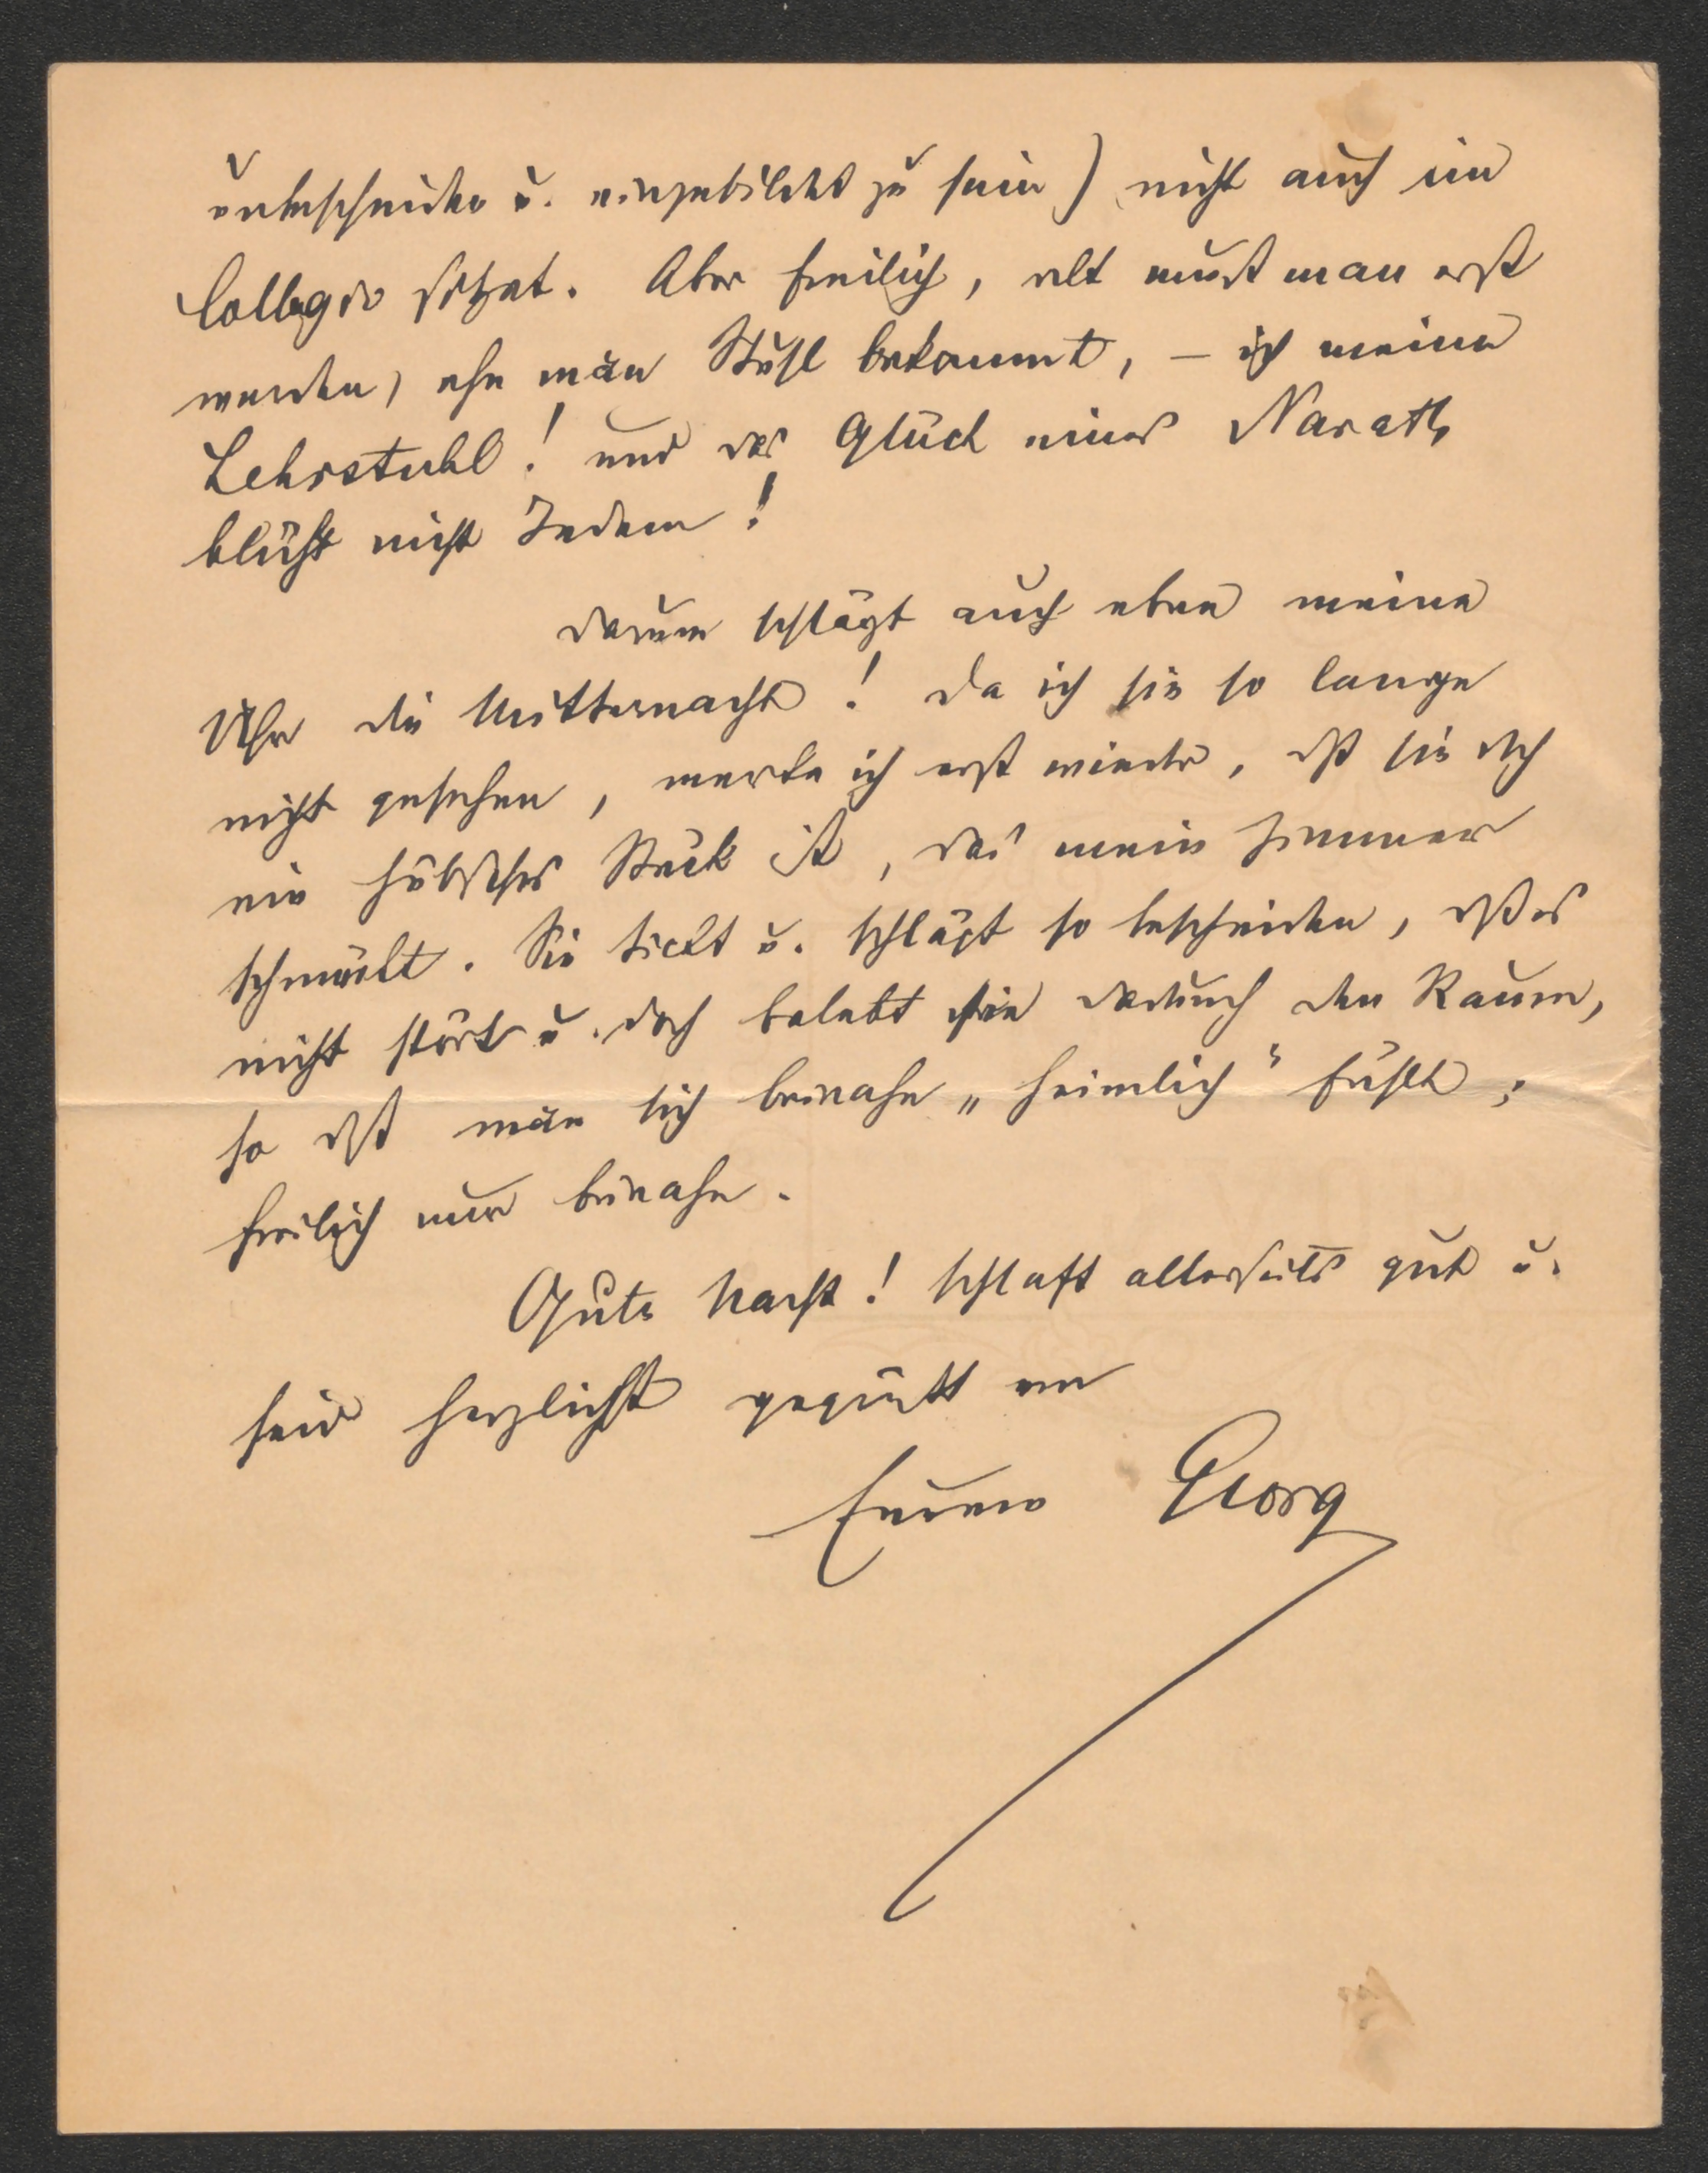 unbescheiden u. eingebildet zu sein) nicht auch im
Collegio sitzet. Aber freilich, alt muß man erst
werden, ehe man Stuhl bekommt, – ich meine
Lehrstuhl! und das Glück eines Narath
blüht nicht Jedem!
Darum schlägt auch eben meine
Uhr die Mitternacht! Da ich sie so lange
nicht gesehen, merke ich erst wieder, dß sie doch
ein hübsches Stück ist, das mein Zimmer
schmückt. Sie tickt u. schlägt so bescheiden, dß es
nicht stört u. doch belebt sie dadurch den Raum,
so dß man sich beinahe „heimlich“ fühlt;
freilich nur beinahe.
Gute Nacht! Schlaft allerseits gut u.
seid herzlichst gegrüßt von
Eurem Georg